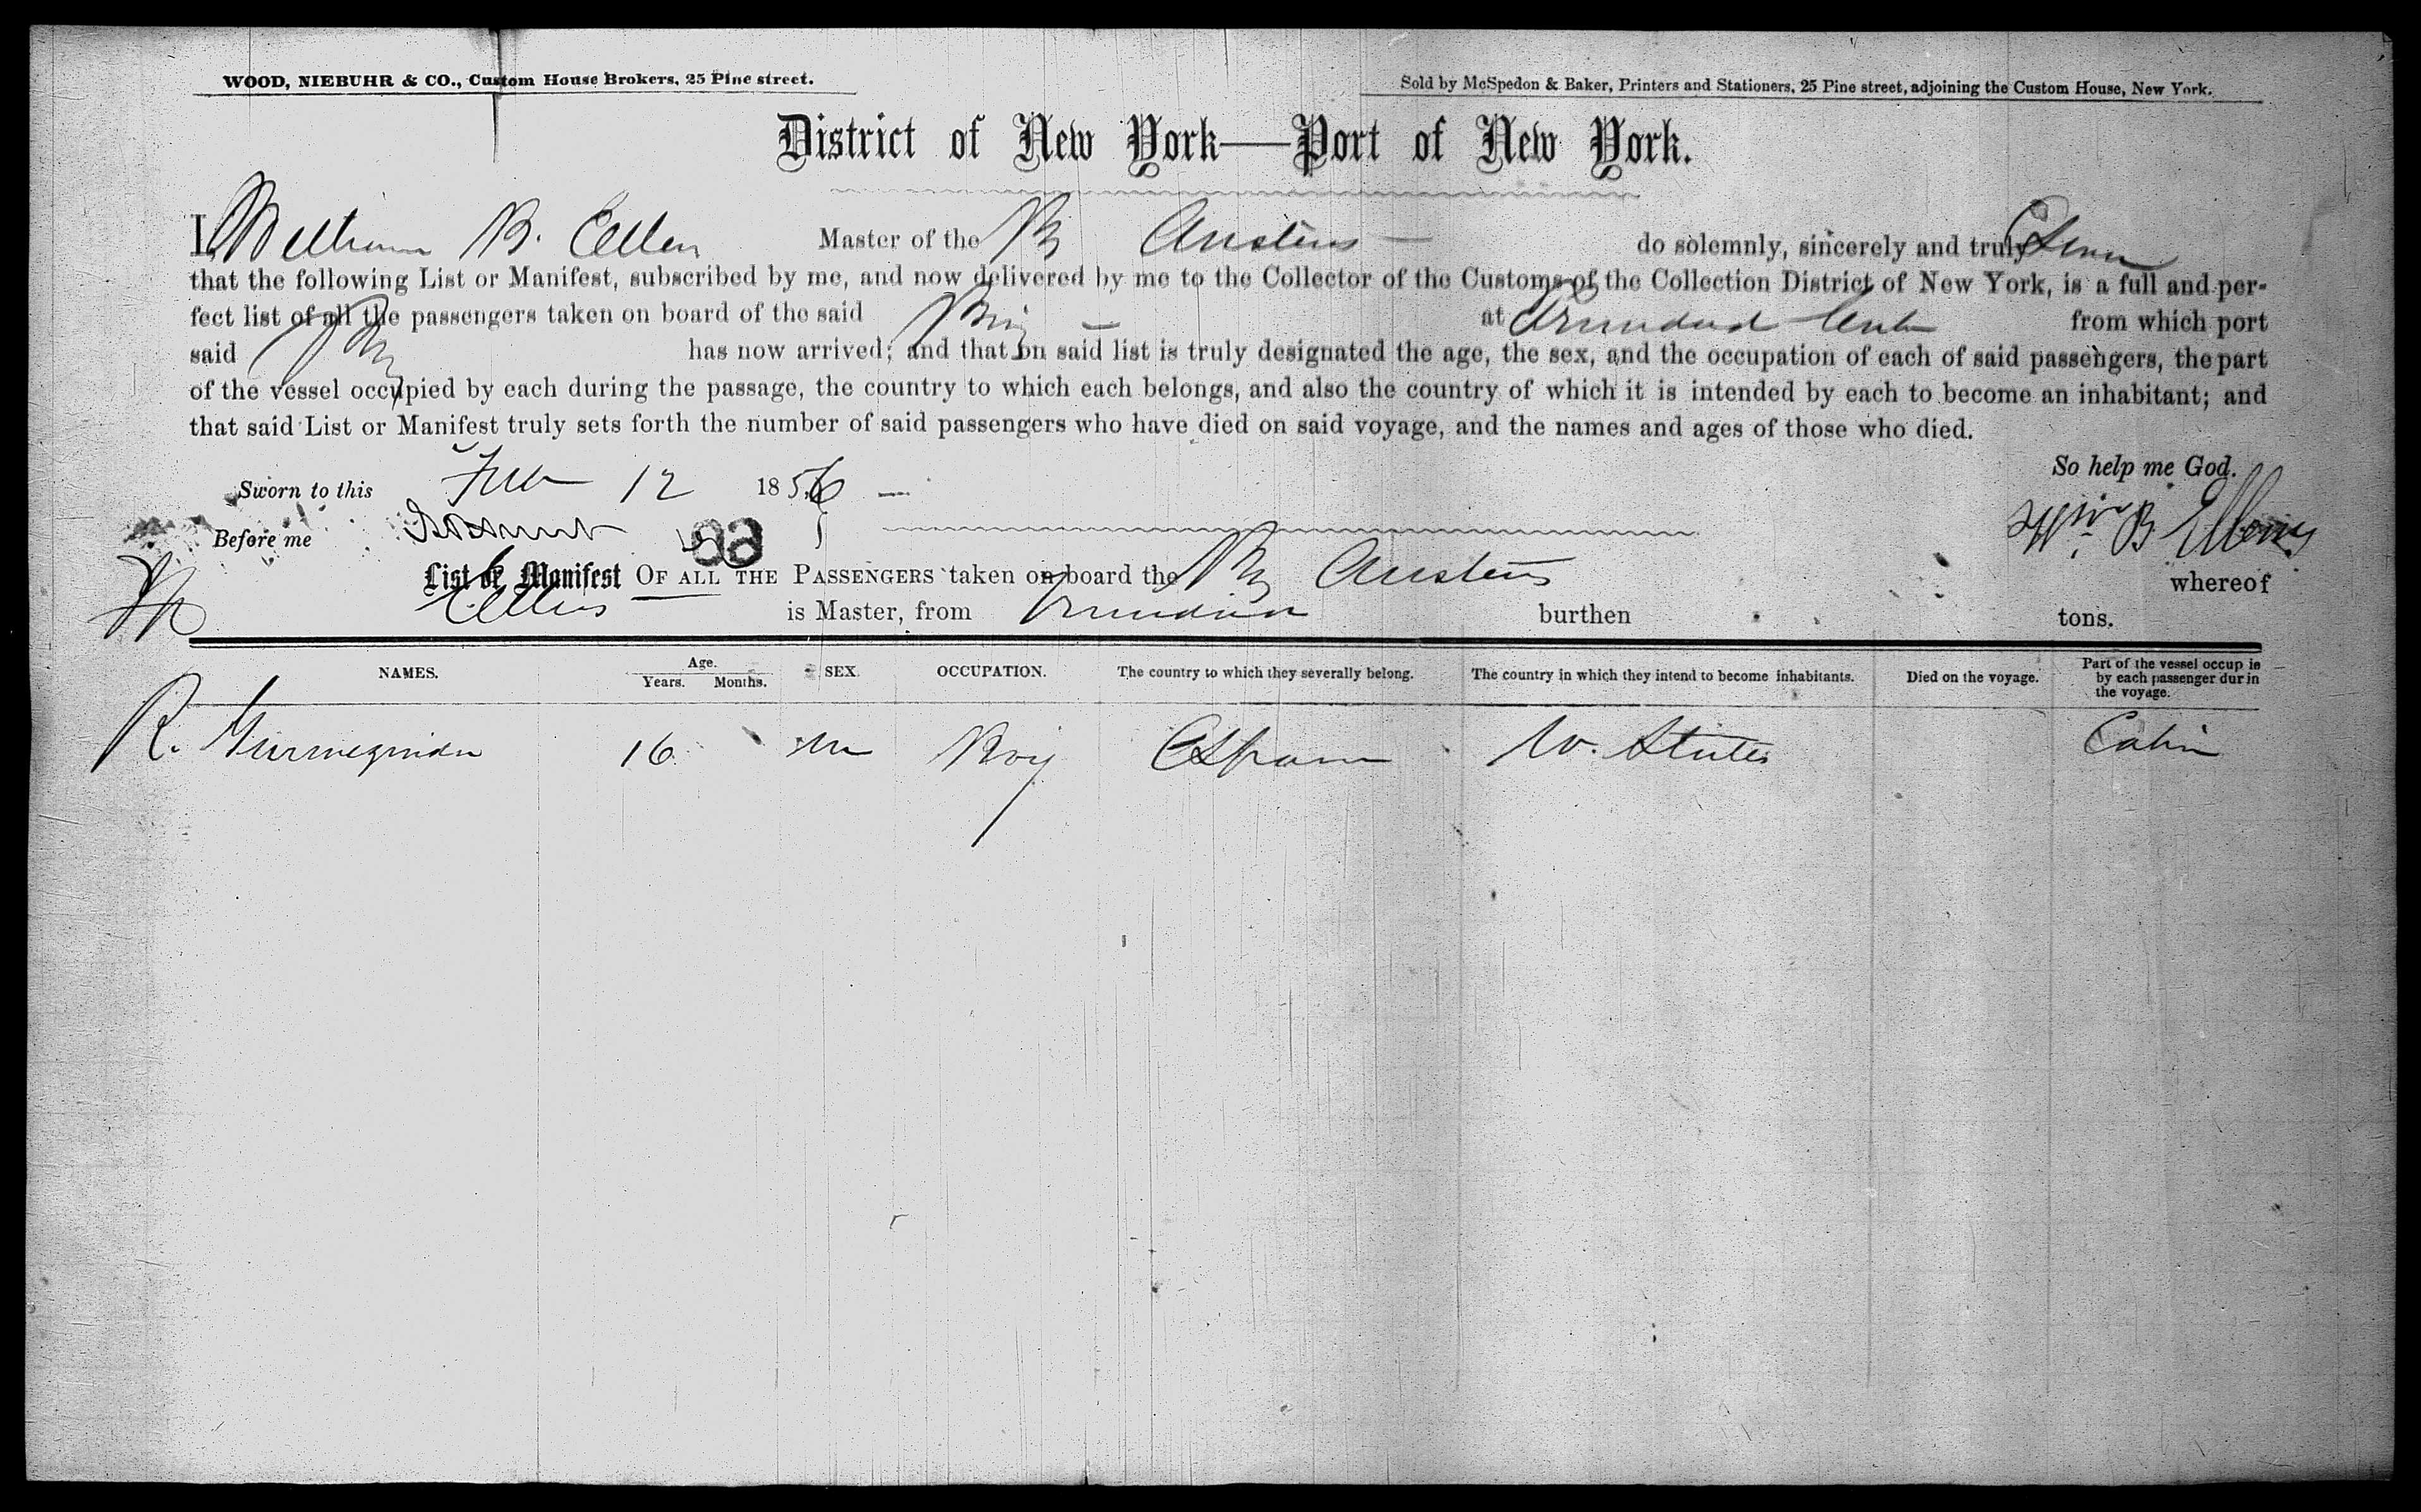 WOOD, NIEBUHR & CO., Custom House Brokers, 25 Pine street.
Sold by McSpedon & Baker, Printers and Stationers, 25 Pine street, adjoining the Custom House, New York.
District of New York—Port of New York.
I, William B. Master of the Br do solemnly, sincerely and truly
that the following List or Manifest, subscribed by me, and now delivered by me to the Collector of the Customs of the Collection District of New York, is a full and per-
fect list of all the passengers taken on board of the said Brig at from which port
said Brig has now arrived; and that on said list is truly designated the age, the sex, and the occupation of each of said passengers, the part
of the vessel occupied by each during the passage, the country to which each belongs, and also the country of which it is intended by each to become an inhabitant; and
that said List or Manifest truly sets forth the number of said passengers who have died on said voyage, and the names and ages of those who died.
So help me God.
Sworn to this 12 1856
Wm B
Before me
List or Manifest OF ALL THE PASSENGERS taken on board the Br whereof
is Master, from burthen tons.
NAMES. Age. Years. Months. SEX. OCCUPATION. The country to which they severally belong. The country in which they intend to become inhabitants. Died on the voyage. Part of the vessel occup ie by each passenger dur in the voyage.
R. 16 m Boy Spain U. States Cabin